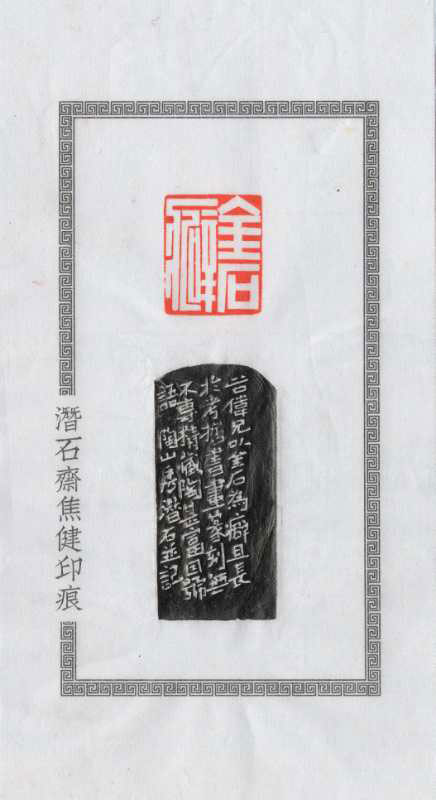 金石
癖
偉兄以金石為癖且長
於考據書畫篆刻無
不專精藏陶甚富因號
語陶山房潛石並記
潛石齋焦健印痕